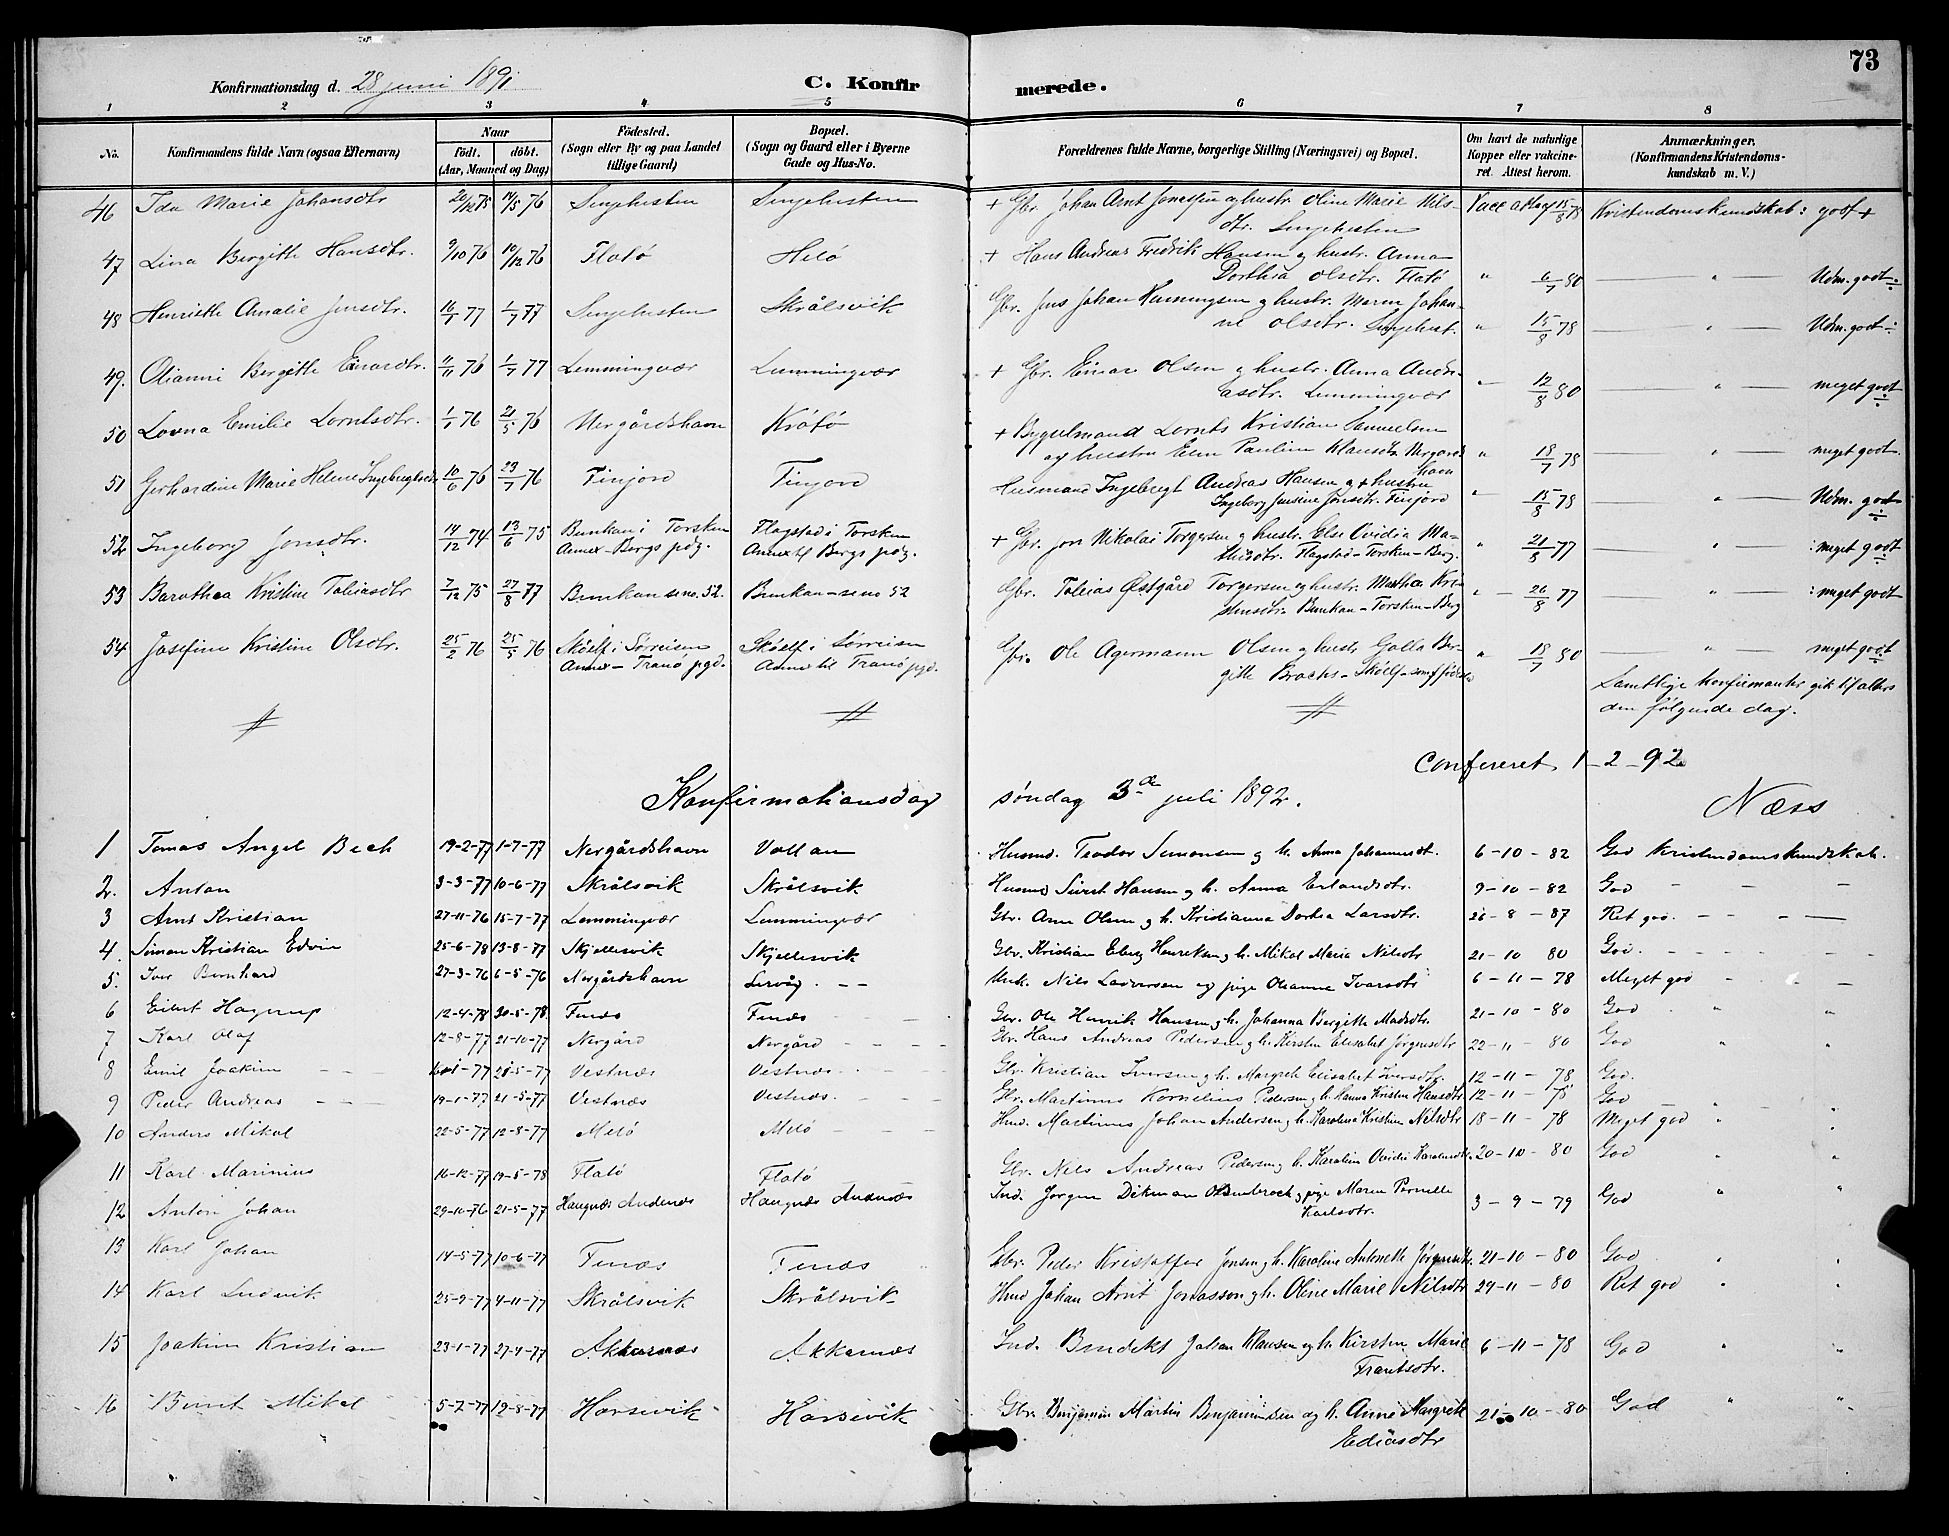 73
Konfirmationsdag d. 28 juni 1891
C. Konfirmerede.
1 2 3 4 5 6 7 8
No.
Konfirmandens fulde Navn (ogsaa Efternavn)
Naar
født. døbt.
(Aar, Maaned og Dag)
Fødested.
(Sogn eller By og paa Landet
tillige Gaard)
Bopæl.
(Sogn og Gaard eller i Byerne
Gade og Hus-No.
Forældrenes fulde Navne, borgerlige Stilling (Næringsvei) og Bopæl.
Om havt de naturlige
Kopper eller vakcine-
ret. Attest herom.
Anmærkninger.
(Konfirmandens Kristendoms-
kundskab m. V.)
46 Ida Marie Johansdtr 20/12 75 14/5 76 + Gbr. Johan Arnt Jonassen og hustr. Oline Marie Nils- Vacc attest 15/8 78 Kristendomskundskab: godt +
dtr.
47 Lina Bergitte Hansdtr. 9/10 76 10/12 76 Flatø Helø + Hans Andreas Fredrik Hansen og hustr. Anna
Dorthea Olsdtr. Flatø " 6/7 80 " Udm. godt
48 Henriette Amalie Jensdtr. 1/7 77 Skrålsvik Gbr. Jens Johan Henningsen og hustr. Maren Johan-
ne Olsdtr. " 15/8 78 " Udm. godt
49. Olianni Bergitte Einardtr. 11/11 76 1/7 77 Lemmingvær Lemmingvær + Gbr. Einar Olsen og hustr. Anna Andre-
asdtr. Lemmingvær " 12/8 80 " meget godt
50 Lovna Emilie Lorntsdtr. 1/1 76 21/5 76 Nergårdshavn Krøtø + Bygselmand Lornts Kristian Samuelsen
og hustru Elen Pauline Klausdtr. Nergårds
havn " 18/7 78 " meget godt.
51 Gerhardine Marie Helene Ingebrigtsdtr 10/6 76 23/7 76 Finjord Finjord Husmand Ingebrigt Andreas Hansen og + hustru
Ingeborg Jensine Jonsdtr. Finjord " 15/8 78 " Udm. godt
52 Ingeborg Jonsdtr. 14/12 74 13/6 75 Bunkan i Torsken Flagstad i Torsken + Gbr. Jon Nikolai Torgersen og hustr. Else Ovidia Ma-
Annex-Bergs pdg. Annex til Bergs pdg. thisdtr. Flagstad-Torsken-Berg. " 21/8 77 : meget godt
53 Barothea Kristine Tobiasdtr 7/12 75 27/8 77 Bunkan se no. 52. Bunkan - se no 52 Gbr. Tobias Østgård Torgersen og hustr. Martha Kri-
stensdtr. Bunkan-Torsken-Berg " 26/8 77 : meget godt
54 Josefine Kristine Olsdtr. 25/2 76 25/5 76 Skøelf i Sørreisen Skøelf i Sørreisen Gbr. Ole Agermann Olsen og hustr. Golla Ber-
Annex-Tranø pgd. Annex til Tranø pgd. gitte Brochs-Skøelf " 18/7 80 " meget godt
Samtlige konfirmanter gik til alters
den følgende dag.
Confereret 1-2-92
Næss
Konfirmationsdag søndag 3de juli 1892.
1 Tomas Angel Bech 19-2-77 1-7-77 Nergårdshavn Vollan Husmd. Teodor Simonsen og h. Anna Johannesdt. 6-10-82 God kristendomskundskab.
2. Anton 3-3-77 10-6-77 Skrålsvik Skrålsvik Husmd Sivert Hansen og h. Anna Erlandsdtr. 9-10-82 God
3 Arnt Kristian 27-11-76 15-7-77 Lemmingvær Lemmingvær Gbr. Arn Olsen og h. Kristianna Dortea Larsdtr. 26-8-87 Ret god.
4. Simon Kristian Edvin 25-6-78 13-8-77 Skjellesvik Skjellesvik Gbr. Kristian Eberg Henriksen og h. Mikal Maria Nilsdtr 21-10 80 God.
5. Iver Bernhard 27-3-76 6-5-76 Nergårdshavn Lervåg Unk. Nils Ladversen og pige Olianna Ivarsdtr 6-11-78 Meget god
6 Eilert Hagerup 12-4-78 30-5-78 Finæs Finæs Gbr. Ole Henrik Hansen og h. Johanna Bergitte Madsdtr. 21-10-80 God
7 Karl Olaf 12-8-77 21-10-77 Nergård Nergård Gbr. Hans Andreas Pedersen og h. Kirsten Elisabet Jørgensdtr 22-11-80 God
8 Emil Joakim 21-5-77 Vestnæs Vestnæs Gbr. Kristian Iversen og h. Margrete Elisabet Iversdtr. 12-11-78 God.
9 Peder Andreas 19-1-77 21-5-77 Vestnæs Vestnæs. Gbr. Martinus Kornelius Pedersen og h. Hanna Kristine Hansdtr. 12-11-78 God
10 Anders Mikal 22-5-77 12-8-77 Melø Melø Hmd. Martinus Johan Andersen og h. Karolina Kristine Nilsdtr 18-11-78 Meget god
11 Karl Marinius 16-12-77 19-5-78 Flatø Flatø Gbr. Nils Andreas Pedersen og h. Karoline Ovidie 20-10-80 God
12 Anton Johan 29-10-76 21-5-77 Haugnæs Andenæs Haugnæs Andnæs Ind. Jørgen Dikman og pige Maren Pernille
Karlsdtr. 3-9-79 God
13 Karl Johan 14-5-77 10-6-77 Finæs Finæs Gbr. Peder Kristoffer Jensen og h. Karoline Antonette Jørgensdtr 21-10-80 God
14 Karl Ludvik 25-9-77 4-11-77 Skrålsvik Skrålsvik Hmd Johan Arnt Jonasson og h. Oline Marie Nilsdtr 29-11-80 Ret god
15 Joakim Kristian 23-1-77 27-4-77 Akkarnæs Akkarnæs Ind. Bendikt Johan Klausen og h. Kirsten Marie
Frantsdtr. 6-11-78 God
16 Bernt Mikal 5-7-77 19-8-77 Horsevik Horsevik Gbr. Benjamin Martin Benjaminsen og h. Anne Margrete
Ediasdtr 21-10-80 God